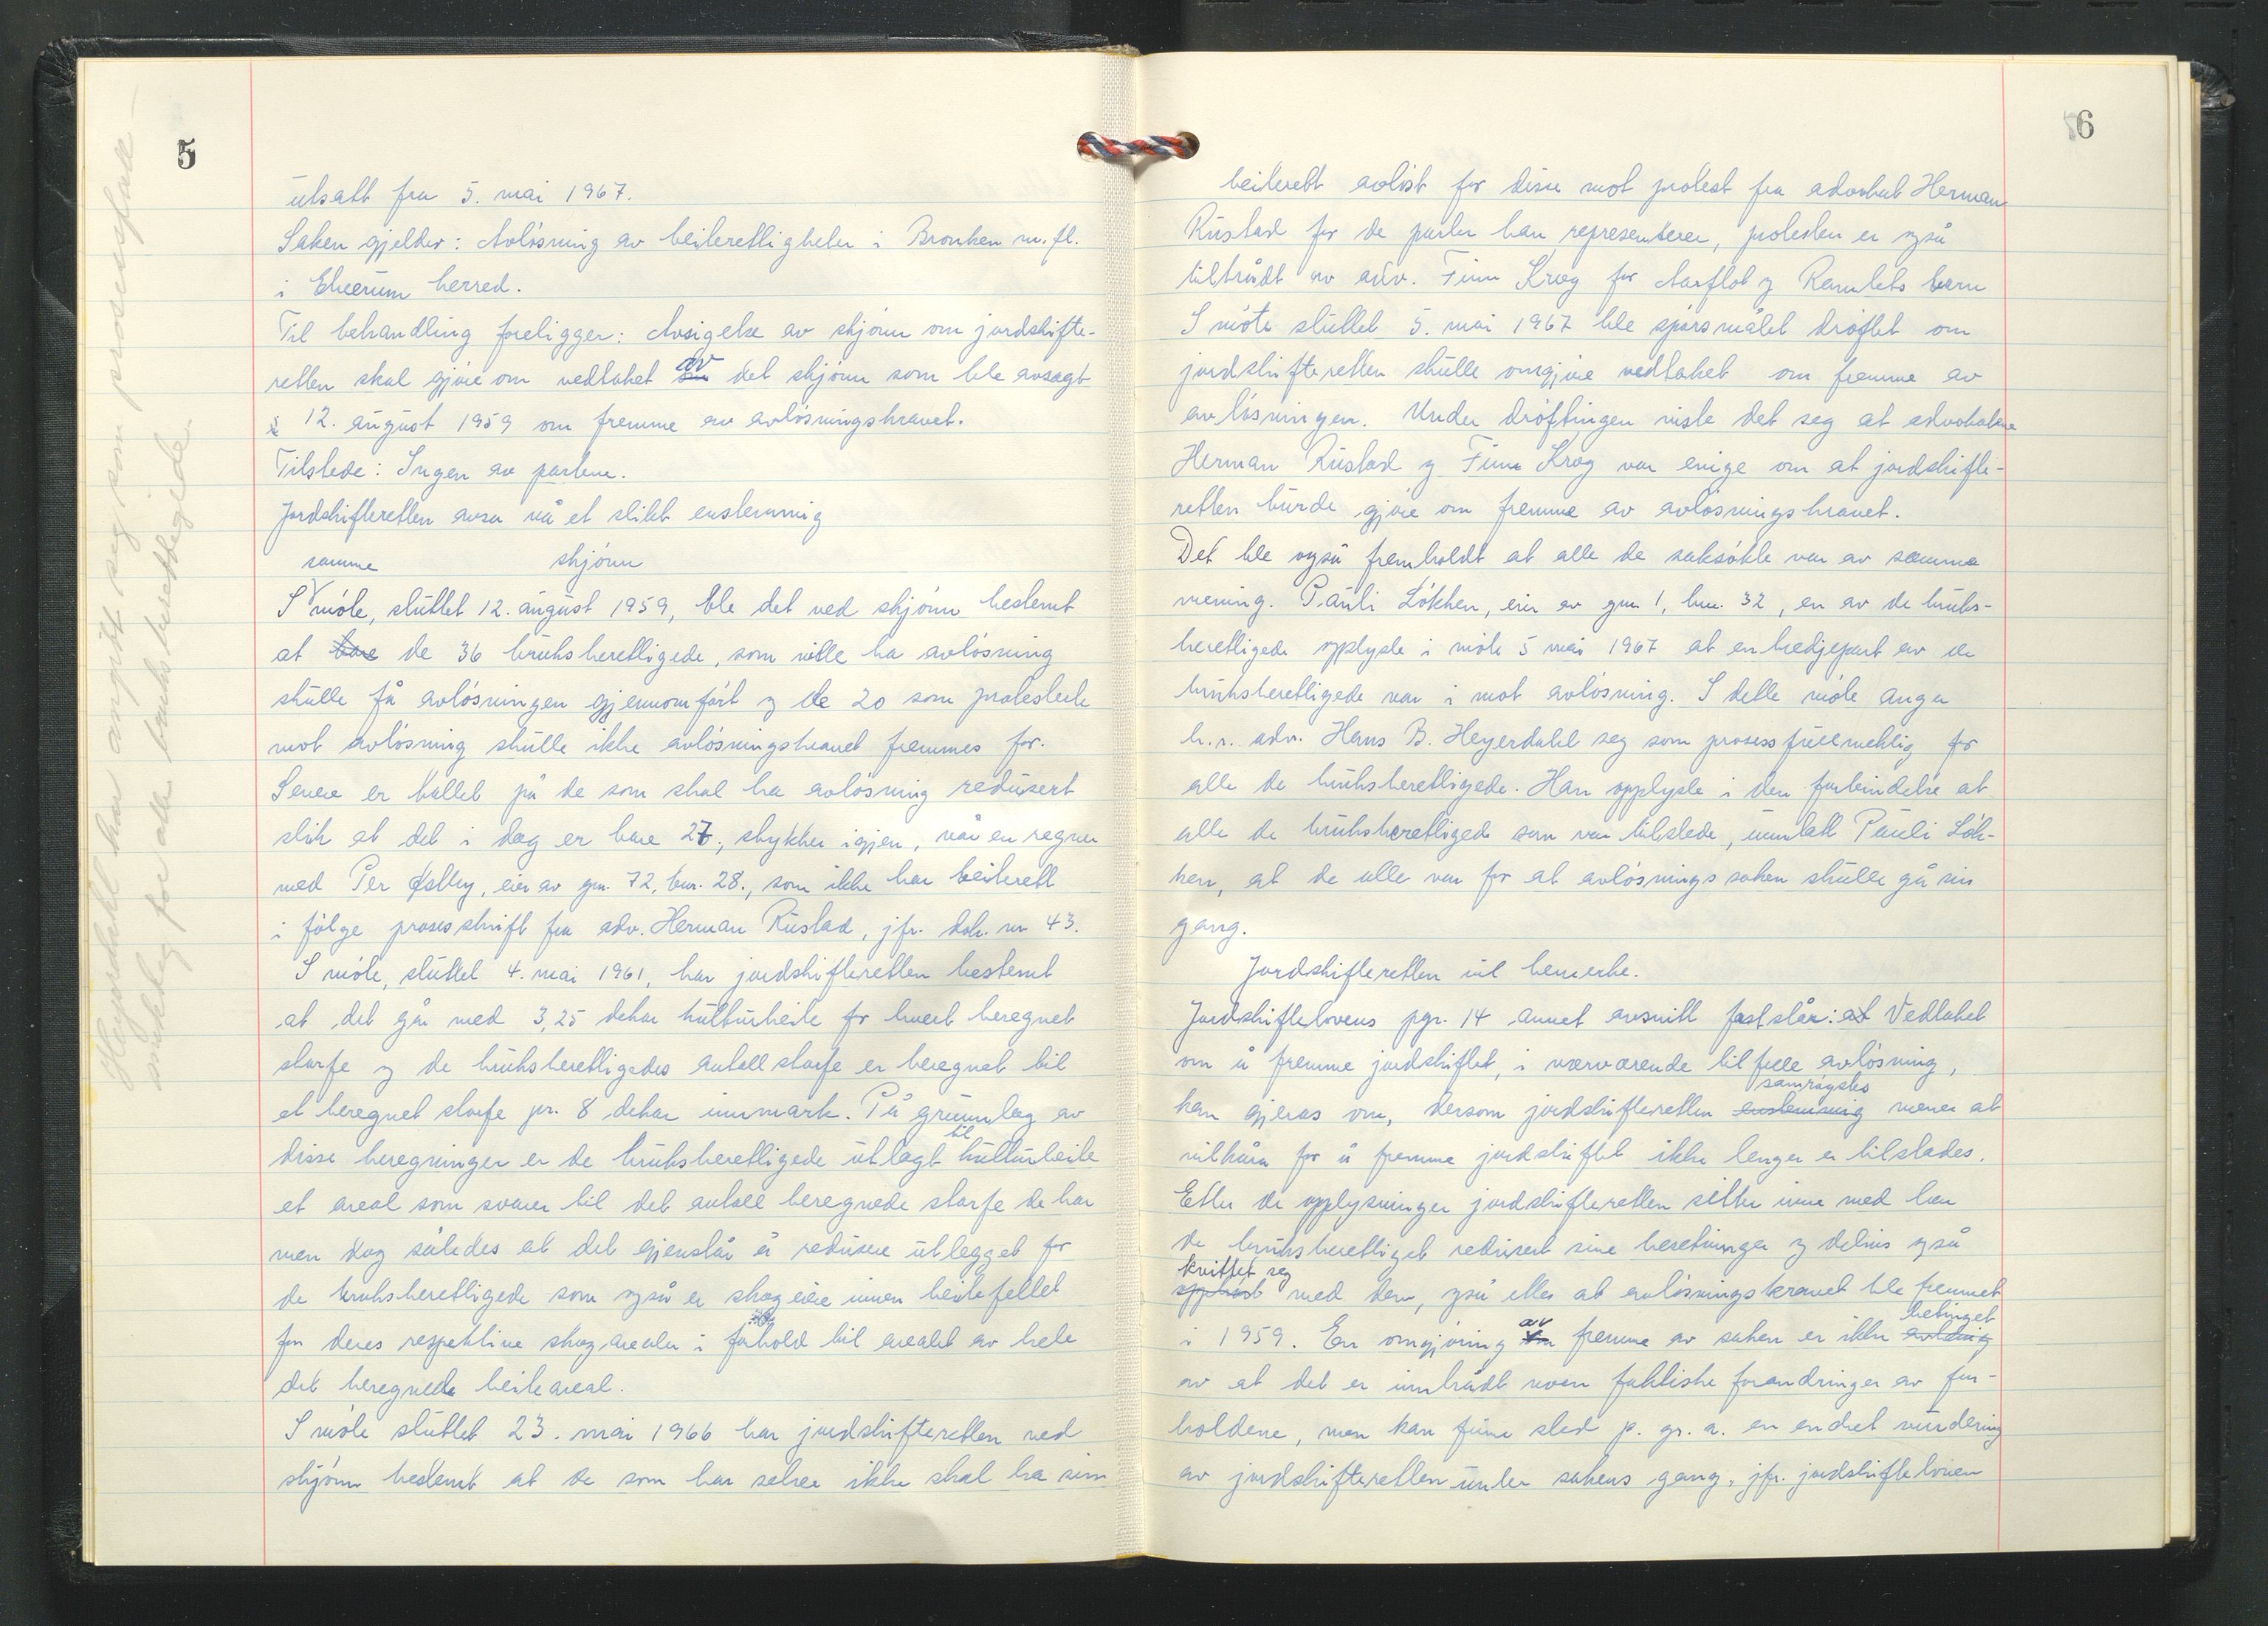 5
utsatt fra 5. mai 1967.
Saken gjelder: Avløsning av beiterettigheter i Bronken m.fl.
i Elverum herred.
Til behandling foreligger: Avsigelse av skjønn om jordskifte-
retten skal gjøre om vedtaket om av det skjønn som ble avsagt
12. august 1959 om fremme av avløsningskravet.
Tilstede: Ingen av partene.
Jordskifteretten avsa nå et slikt enstemmig
skjønn
I samme møte, sluttet 12. august 1959, ble det ved skjønn bestemt
at bare de 36 bruksberettigede, som ville ha avløsning
skulle få avløsningen gjennomført og de 20 som protesterte
mot avløsning skulle ikke avløsningskravet fremmes for.
Senere er tallet på de som skal ha avløsning redusert
slik at det i dag er bare 27, stykker igjen, når en regner
med Per Østby, eier av gnr. 72, bnr. 28., som ikke har beiterett
i følge prosesskrift fra adv. Herman Rustad, jfr. dok. nr 43.
I møte, sluttet 4. mai 1961, har jordskifteretten bestemt
at det går med 3,25 dekar kulturbeite for hvert beregnet
storfe og de bruksberettigedes antall storfe er beregnet til
et beregnet storfe pr. 8 dekar innmark. På grunnlag av
disse beregninger er de bruksberettigede utlagt til kulturbeite
et areal som svarer til det antall beregnede storfe de har
men dog således at det gjenstår å redusere utlegget for
de bruksberettigede som også er skogeiere innen beitefeltet
for deres respektive skogarealer i forhold til arealet av hele
det beregnede beiteareal.
I møte sluttet 23. mai 1966 har jordskifteretten ved
skjønn bestemt at de som har seter ikke skal ha sin
Heyerdahl har angitt seg som prosessfull-
mektig for alle bruksberettigede.
6
beiterett avløst for disse mot protest fra advokat Herman
Rustad for de parter han representerer, protesten er også
tiltrådt av adv. Finn Krog for Aarflot og Ramlets barn
I møte sluttet 5. mai 1967 ble spørsmålet drøftet om
jordskifteretten skulle omgjøre vedtaket om fremme av
avløsningen. Under drøftingen viste det seg at advokatene
Herman Rustad og Finn Krog var enige om at jordskifte-
retten burde gjøre om fremme av avløsningskravet.
Det ble også fremholdt at alle de saksøkte var av samme
mening. Pauli Løkken, eier av gnr. 1, bnr. 32, en av de bruks-
berettigede opplyste i møte 5 mai 1967 at en tredjepart av de
bruksberettigede var i mot avløsning. I dette møte anga
h.r. adv. Hans B. Heyerdahl seg som prosessfullmektig for
alle de bruksberettigede. Han opplyste i den forbindelse at
alle de bruksberettigede som var tilstede, unntatt Pauli Løk-
ken, at de alle var for at avløsningssaken skulle gå sin
gang.
Jordskifteretten vil bemerke.
Jordskiftelovens pgr. 14 annet avsnitt fastslår: at Vedtaket
om å fremme jordskiftet, i nærværende tilfelle avløsning,
kan gjøres om, dersom jordskifteretten enstemmig samrøystes mener at
vilkåra for å fremme jordskiftet ikke lenger er tilstades.
Etter de opplysninger jordskifteretten sitter inne med har
de bruksberettiget redusert sine beretninger og delvis også
opphørt kvittet seg med dem, også etter at avløsningskravet ble fremmet
i 1959. En omgjøring om av fremme av saken er ikke avhengig betinget
av at det er inntrådt noen faktiske forandringer av for-
holdene, men kan finne sted p. gr. a. en endret vurdering
av jordskifteretten under sakens gang, jfr. jordskifteloven